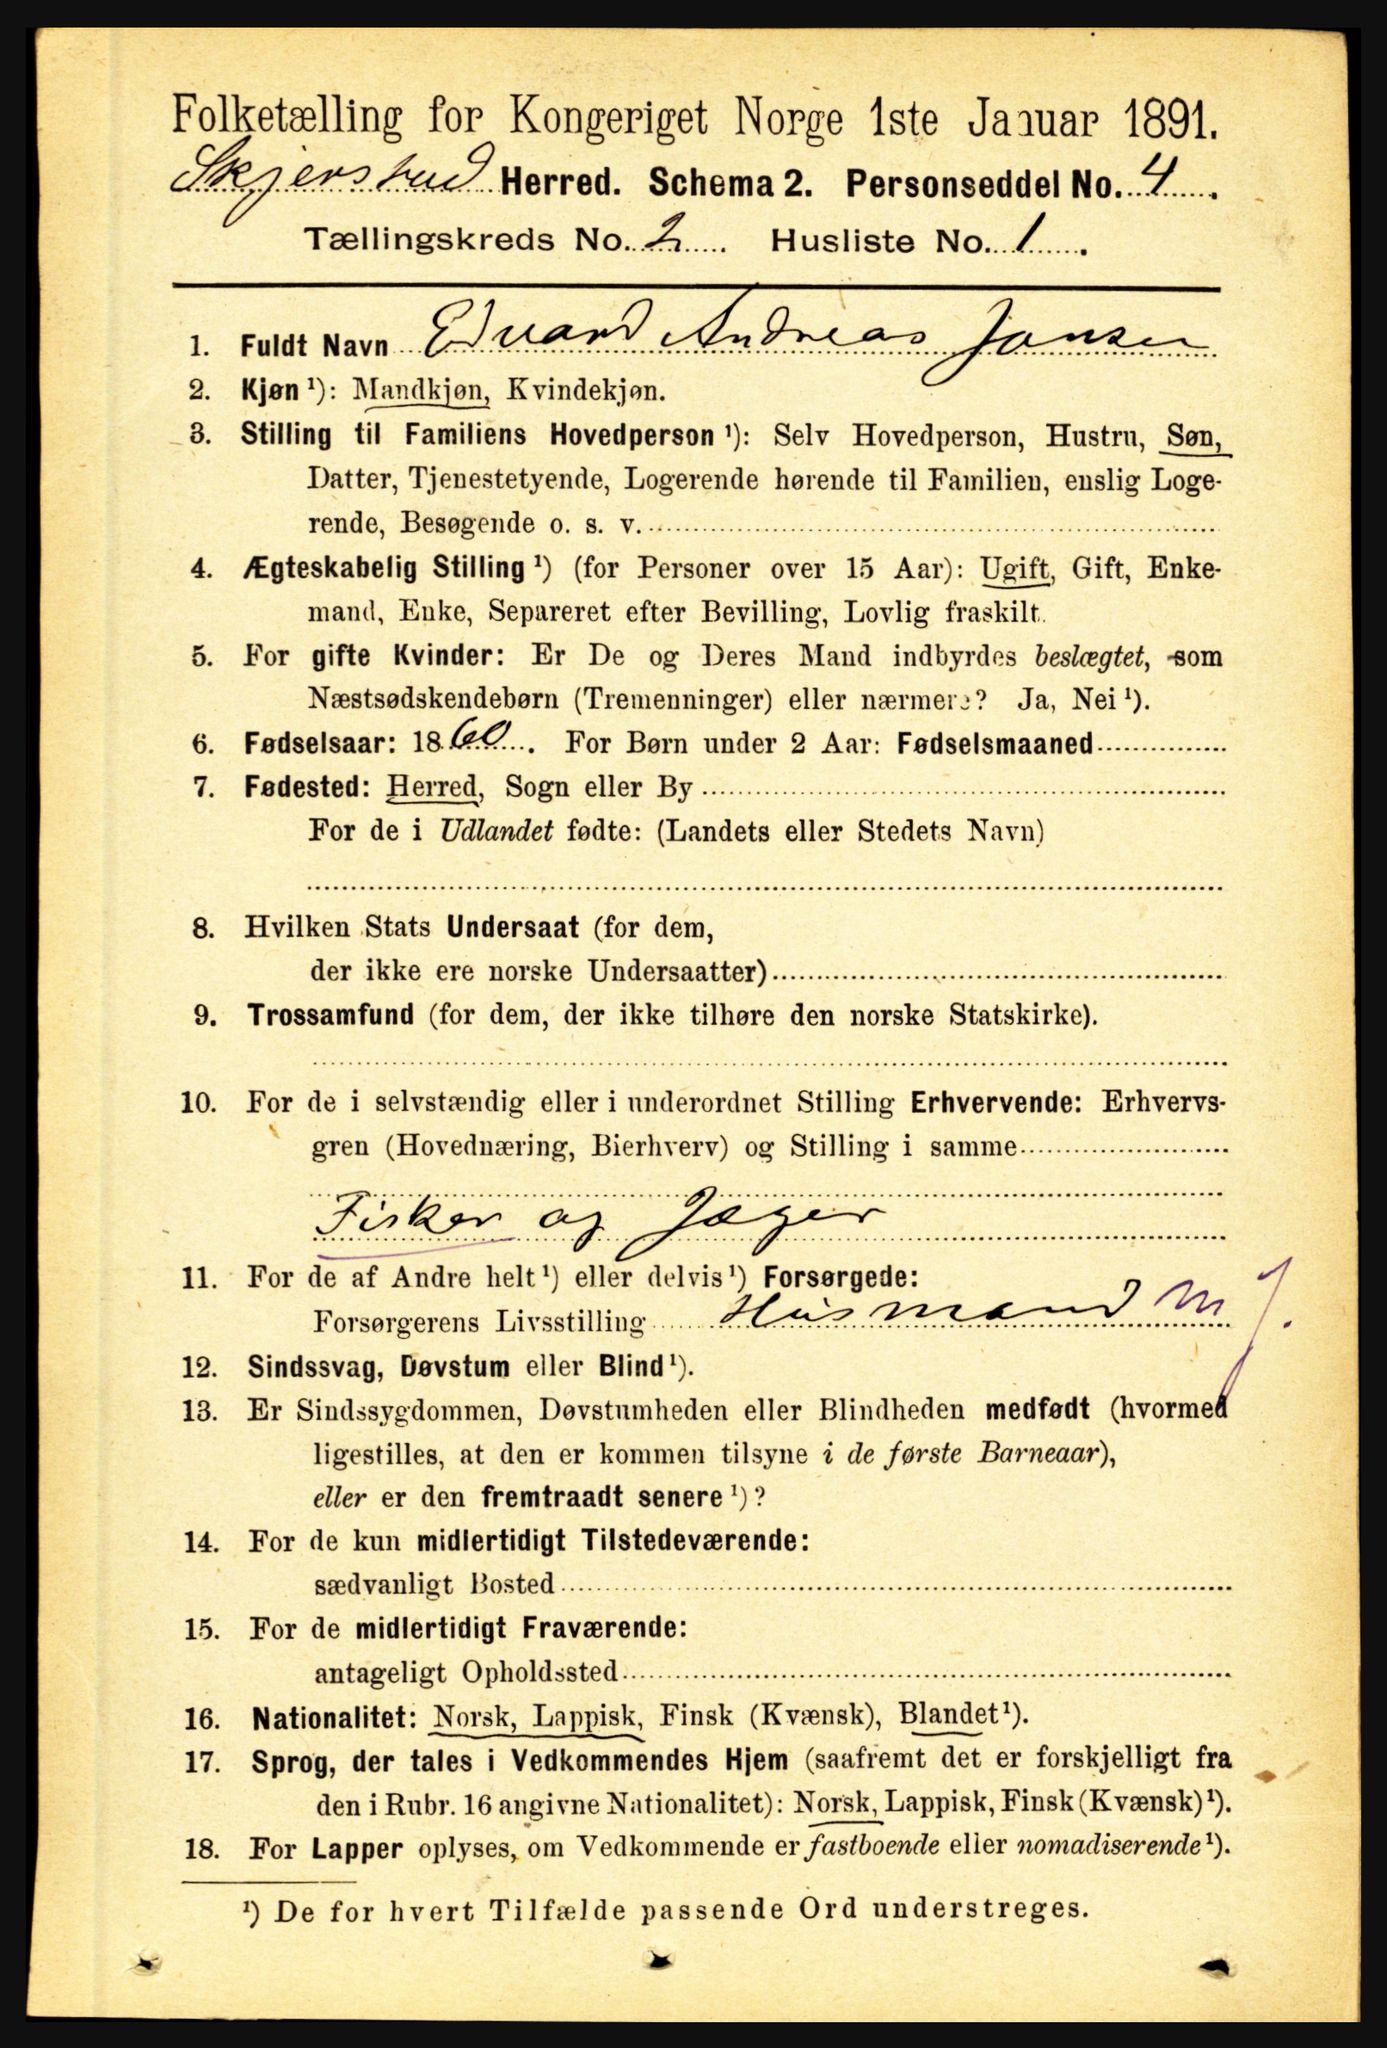 Folketælling for Kongeriget Norge 1ste Januar 1891.
Skjerstad Herred. Schema 2. Personseddel No. 4.
Tællingskreds No. 2. Husliste No. 1.
1. Fuldt Navn Edvard Andreas Jansen
2. Kjøn ¹): Mandkjøn, Kvindekjøn.
3. Stilling til Familiens Hovedperson ¹): Selv Hovedperson, Hustru, Søn,
Datter, Tjenestetyende, Logerende hørende til Familien, enslig Loge-
rende, Besøgende o. s. v.
4. Ægteskabelig Stilling ¹) (for Personer over 15 Aar): Ugift, Gift, Enke-
mand, Enke, Separeret efter Bevilling, Lovlig fraskilt.
5. For gifte Kvinder: Er De og Deres Mand indbyrdes beslægtet, som
Næstsødskendebørn (Tremenninger) eller nærmere? Ja, Nei ¹).
6. Fødselsaar: 1860. For Børn under 2 Aar: Fødselsmaaned
7. Fødested: Herred, Sogn eller By
For de i Udlandet fødte: (Landets eller Stedets Navn)
8. Hvilken Stats Undersaat (for dem,
der ikke ere norske Undersaatter)
9. Trossamfund (for dem, der ikke tilhøre den norske Statskirke).
10. For de i selvstændig eller i underordnet Stilling Erhvervende: Erhvervs-
gren (Hovednæring, Bierhverv) og Stilling i samme
Fisker og Jæger
11. For de af Andre helt ¹) eller delvis ¹) Forsørgede:
Forsørgerens Livsstilling Husmand m J.
12. Sindssvag, Døvstum eller Blind ¹).
13. Er Sindssygdommen, Døvstumheden eller Blindheden medfødt (hvormed
ligestilles, at den er kommen tilsyne i de første Barneaar),
eller er den fremtraadt senere ¹)?
14. For de kun midlertidigt Tilstedeværende:
sædvanligt Bosted
15. For de midlertidigt Fraværende:
antageligt Opholdssted
16. Nationalitet: Norsk, Lappisk, Finsk (Kvænsk), Blandet ¹).
17. Sprog, der tales i Vedkommendes Hjem (saafremt det er forskjelligt fra
den i Rubr. 16 angivne Nationalitet): Norsk, Lappisk, Finsk (Kvænsk) ¹).
18. For Lapper oplyses, om Vedkommende er fastboende eller nomadiserende ¹).
¹) De for hvert Tilfælde passende Ord understreges.